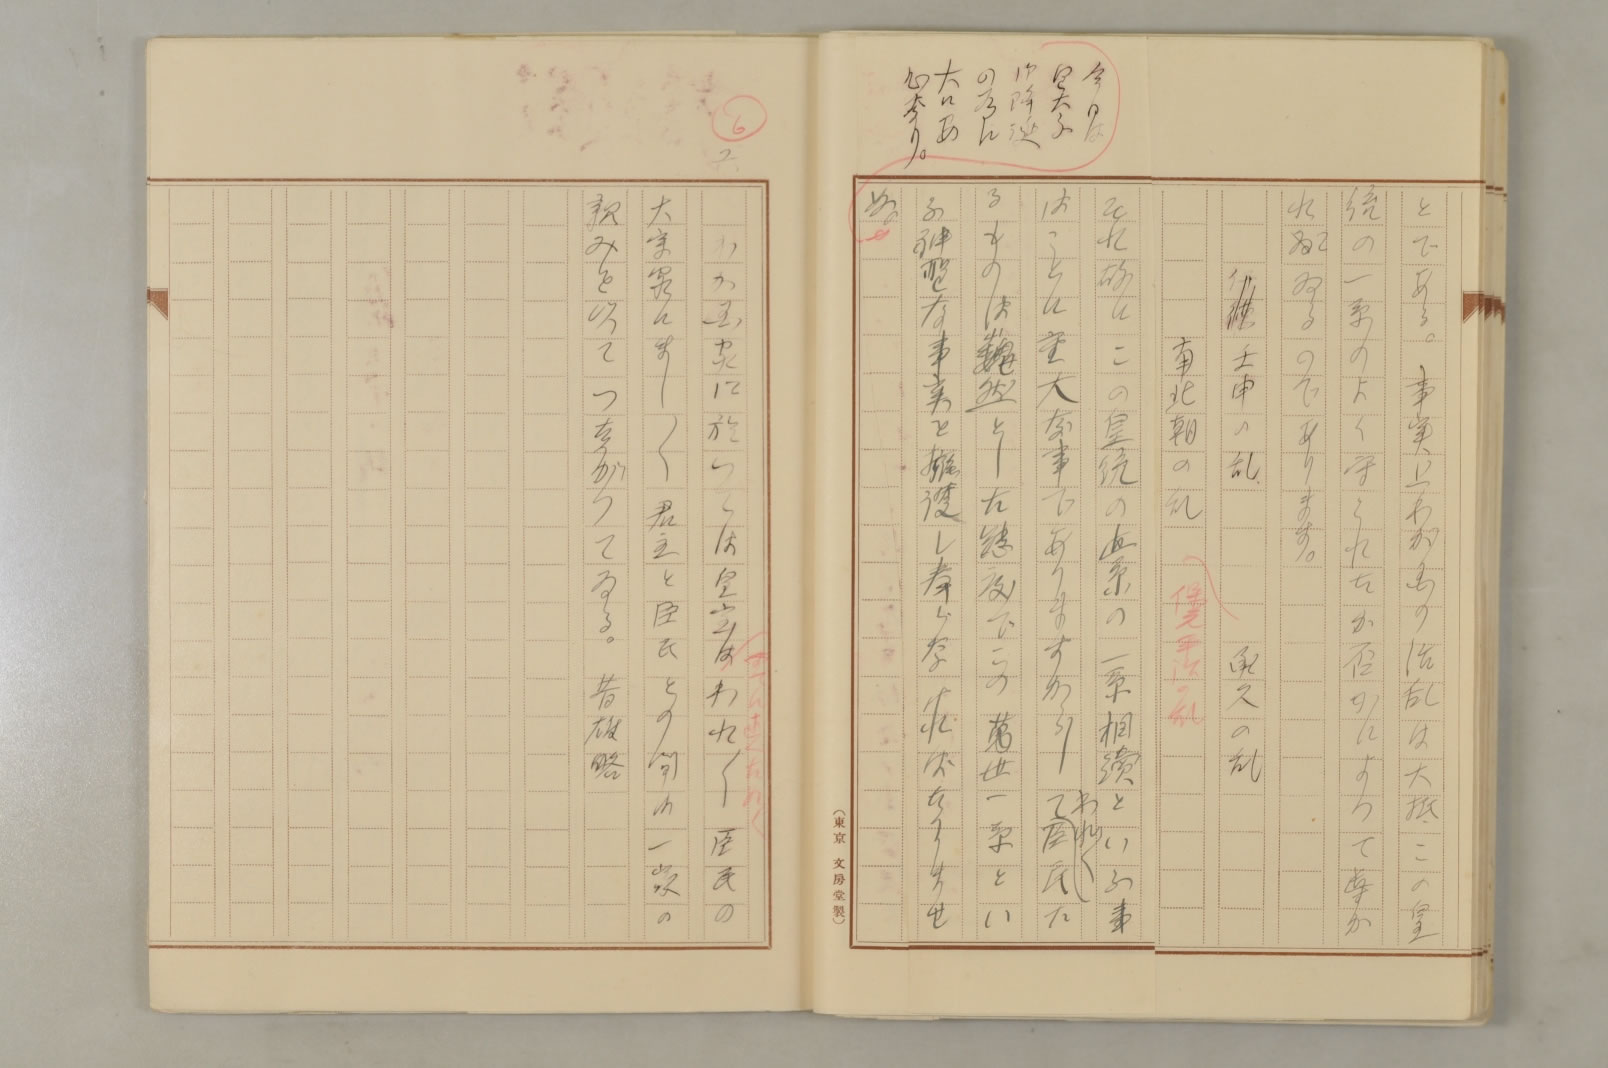 今日は
皇太子
御降誕
の為に
大にあ
とである。事実上わが国の治乱は大抵この皇
統の一系のよく守られたか否かによつて事か
れてゐるのであります。
壬申の乱 承久の乱
南北朝の乱
保元平治の乱
それ故にこの皇統の一系の一系相續といふ事
はことに重大な事でありますから
われ〱
て臣民た
るものは巍然とした態度でこの萬世一系とい
ふ神聖な事実を擁護し奉らなければなりませ
ぬ。
(東京 文房堂製)
6
六
わが国家に於いては皇室はわれ〱臣民の
大宗家にまし〱君主と臣民との間は一家の
親みを以てつながつてゐる。昔雄略